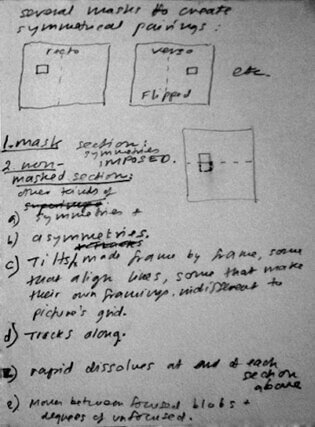 several masks to create
symmetrical pairings:
recto
verso
Flipped
etc.
1. mask section:
symmetries
IMPOSED.
2 non-
masked section:
other kinds of
a) symmetries +
b) asymmetries.
c) Tilts, made frame by frame, some
that align lines, some that make
their own framings, indifferent to
picture's grid.
d) Tracks along.
e) rapid dissolves at end of each
section
above
e) Moves between focused blobs +
degrees of unfocused.